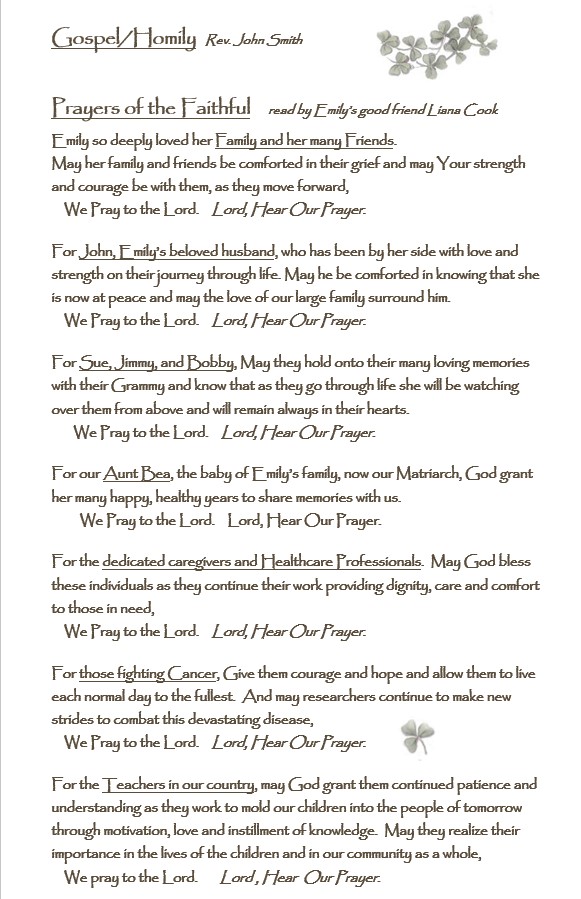 Gospel/Homily Rev. John Smith
Prayers of the Faithful read by Emily's good friend Liana Cook
Emily so deeply loved her Family and her many Friends.
May her family and friends be comforted in their grief and may Your strength
and courage be with them, as they move forward,
We Pray to the Lord. Lord, Hear Our Prayer.
For John, Emily's beloved husband, who has been by her side with love and
strength on their journey through life. May he be comforted in knowing that she
is now at peace and may the love of our large family surround him.
We Pray to the Lord. Lord, Hear Our Prayer.
For Sue, Jimmy, and Bobby, May they hold onto their many loving memories
with their Grammy and know that as they go through life she will be watching
over them from above and will remain always in their hearts.
We Pray to the Lord. Lord, Hear Our Prayer.
For our Aunt Bea, the baby of Emily's family, now our Matriarch, God grant
her many happy, healthy years to share memories with us.
We Pray to the Lord. Lord, Hear Our Prayer.
For the dedicated caregivers and Healthcare Professionals. May God bless
these individuals as they continue their work providing dignity, care and comfort
to those in need,
We Pray to the Lord. Lord, Hear Our Prayer.
For those fighting Cancer, Give them courage and hope and allow them to live
each normal day to the fullest. And may researchers continue to make new
strides to combat this devastating disease,
We Pray to the Lord. Lord, Hear Our Prayer.
For the Teachers in our country, may God grant them continued patience and
understanding as they work to mold our children into the people of tomorrow
through motivation, love and instillment of knowledge. May they realize their
importance in the lives of the children and in our community as a whole,
We pray to the Lord. Lord , Hear Our Prayer.